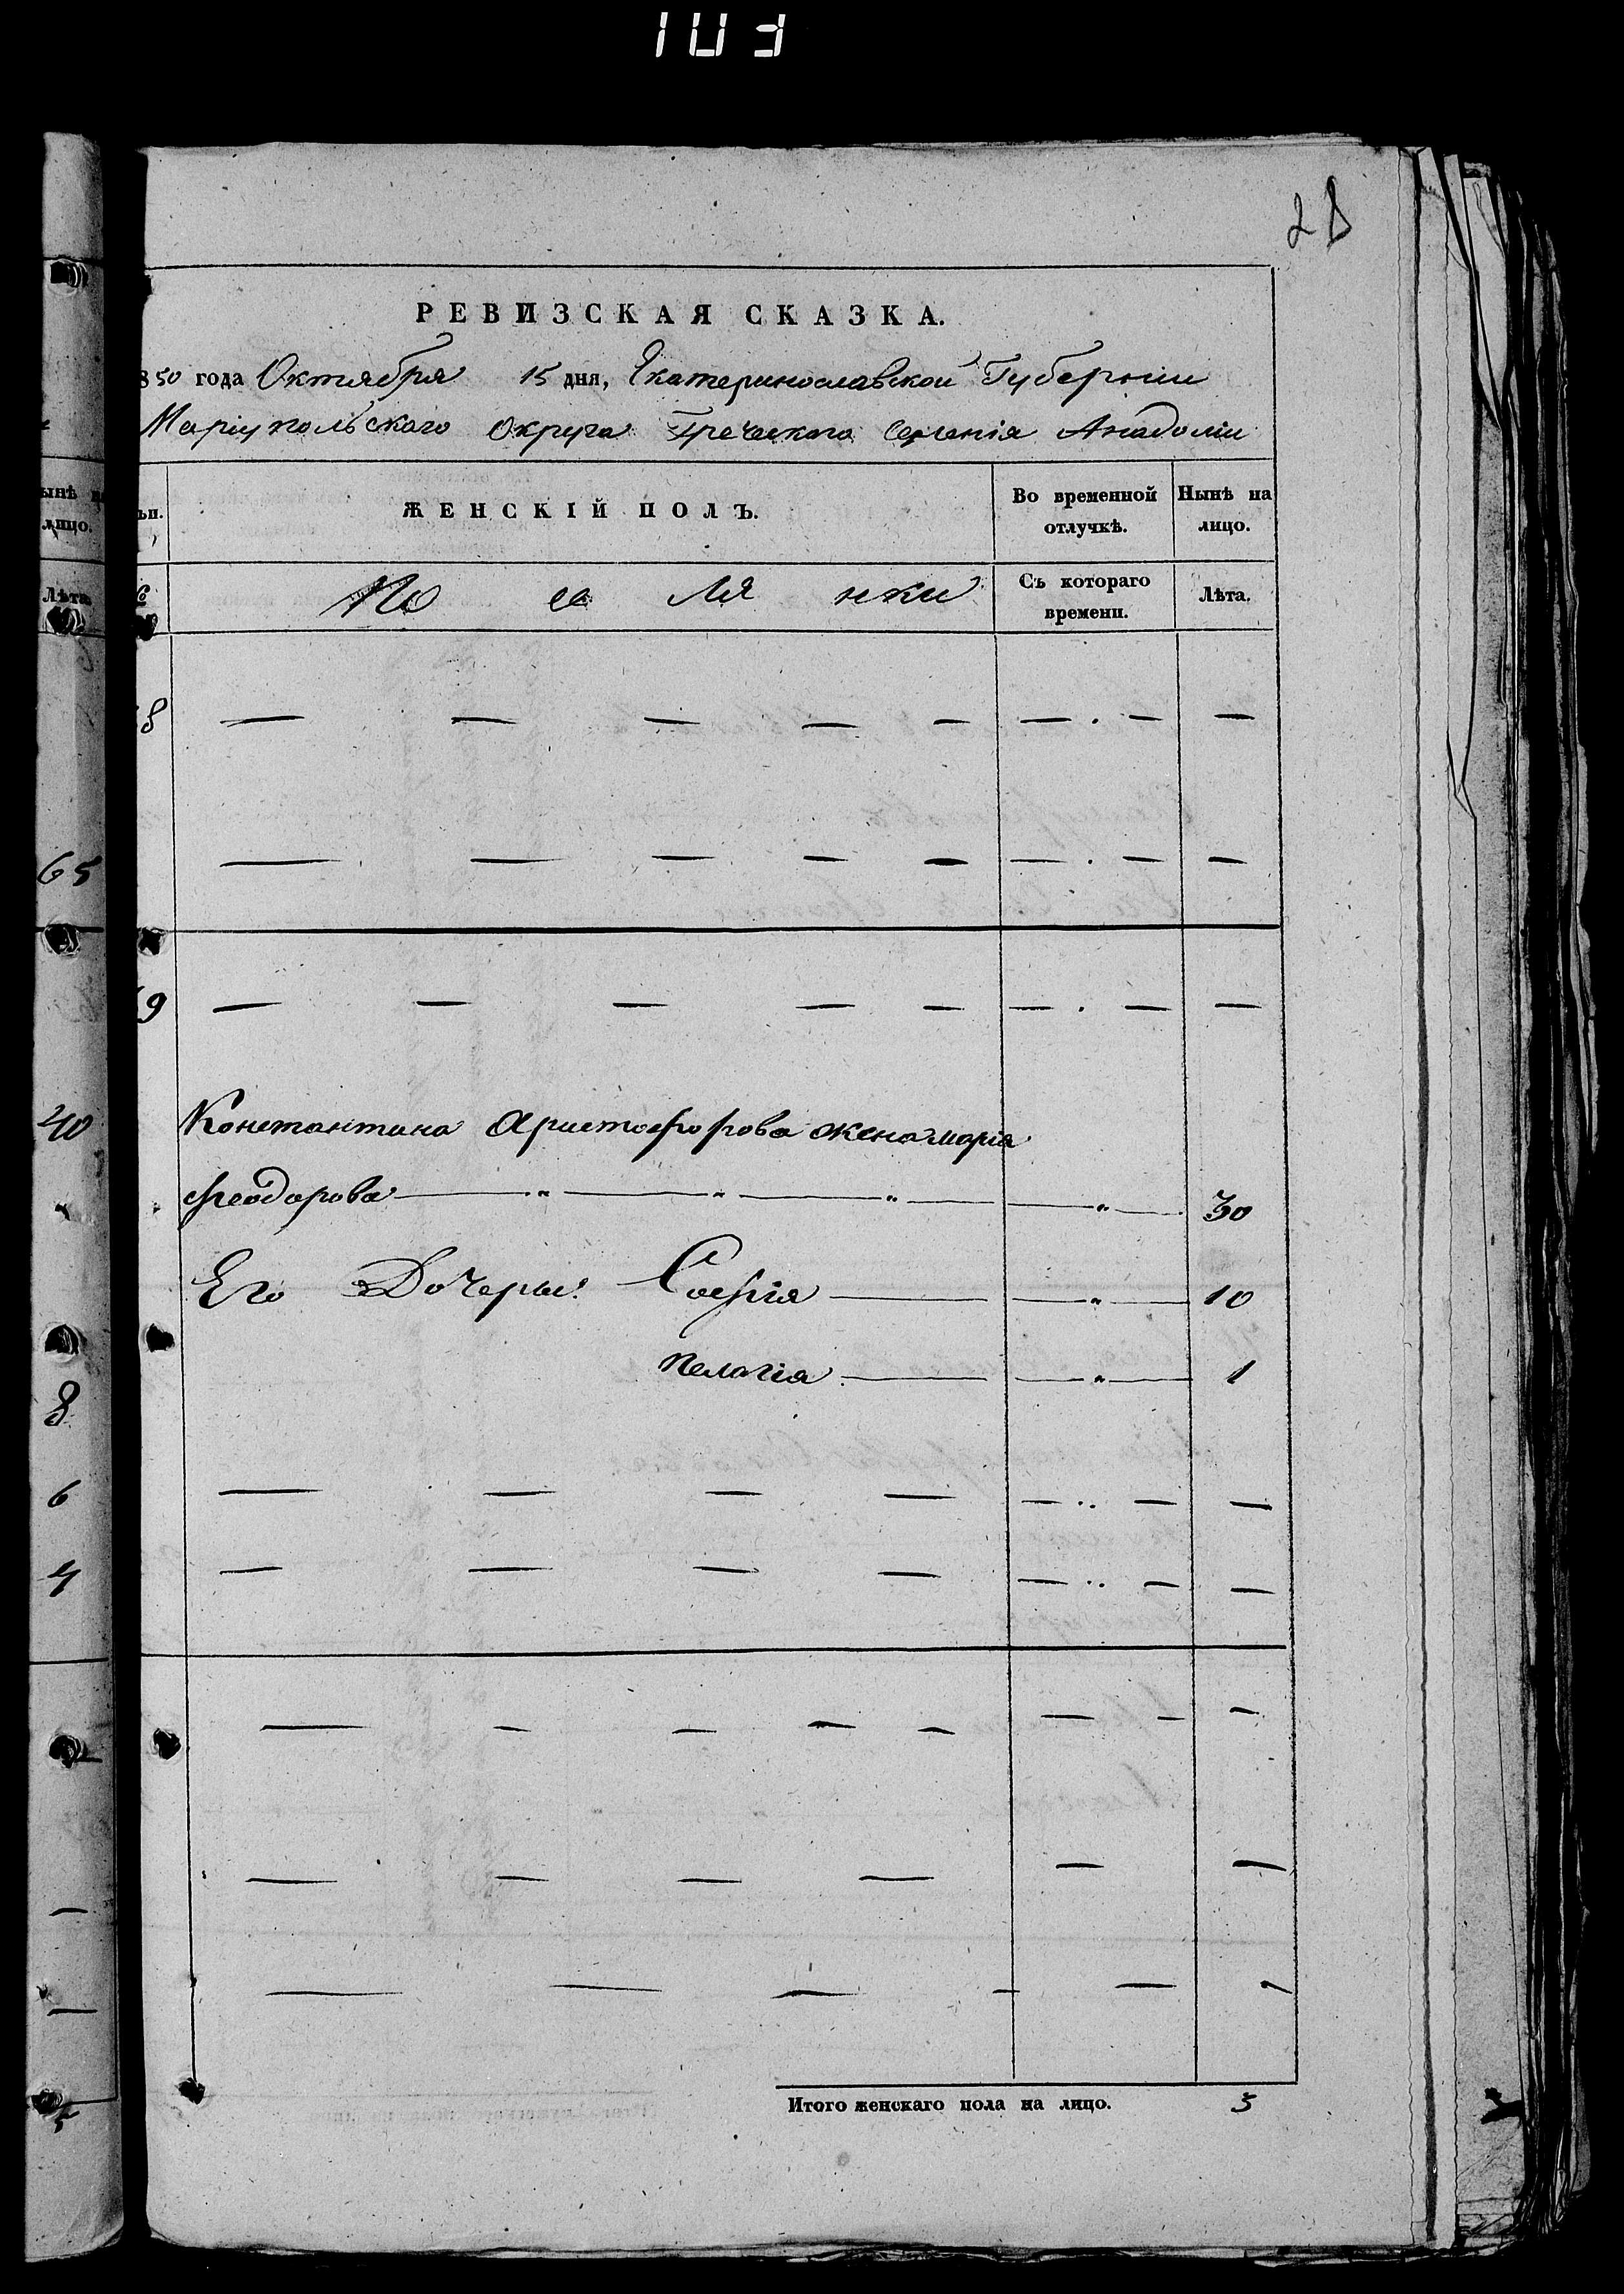 103
28
РЕВИЗСКАЯ СКАЗКА.
850 года Октября 15 дня, Екатеринославской Губернии
Маріупольскаго Округа Греческаго Селенія Анадоліи
ынѣ на
лицо.
ьи.
ЖЕНСКІЙ ПОЛЪ.
Во временной отлучкѣ.
Нынѣ на лицо.
Лѣта.
По се ля нки
Съ котораго времени.
Лѣта.
8 — — — — — — . — —
65 — — — — — — . — —
9 — — — — — — . — —
40 Константина Аристофорова жена Марія
Феодорова — „ — „ — „ — — „ — 30
Его Дочери: Софія — — „ — 10
Пелагія — — „ — 1
8
6 — — — — — .. — —
4 — — — — — .. — —
— — — — — — — —
— — — — — — —
— — — — — — —
Итого женскаго пола на лицо. 3
5